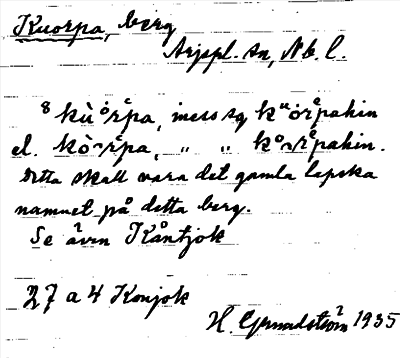 Kuorpa, berg
Arjepl. sn, Nb. l.
8 kùo̊rᵉpa, iness sg kᵘo̊rᵉpahin
el. kò̊rᵉpa, " " ko̊rᵉpahin.
Detta skall vara det gamla lapska
namnet på detta berg.
Se även Kåntjok
27 a 4 Konjok
H. Grundström 1935